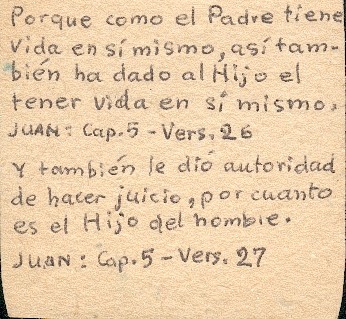 Porque como el Padre tiene
vida en sí mismo, así tam-
bién ha dado al Hijo el
tener vida en sí mismo.
JUAN: Cap. 5 - Vers. 26
Y también le dió autoridad
de hacer juicio, por cuanto
es el Hijo del hombre.
JUAN: Cap. 5 - Vers. 27